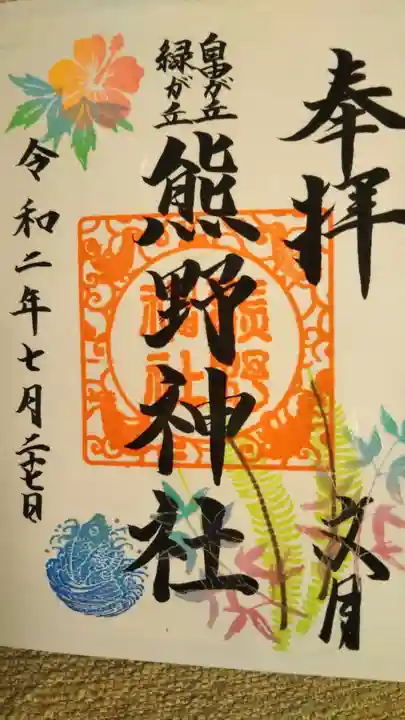 奉拝
文月
自由が丘
緑が丘
熊野神社
令和二年七月二十七日